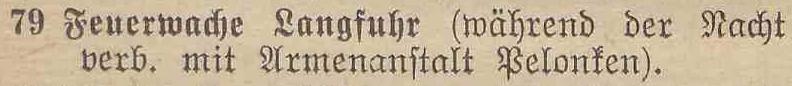 79 Feuerwache Langfuhr (während der Nacht
verb. mit Armenanstalt Pelonken).